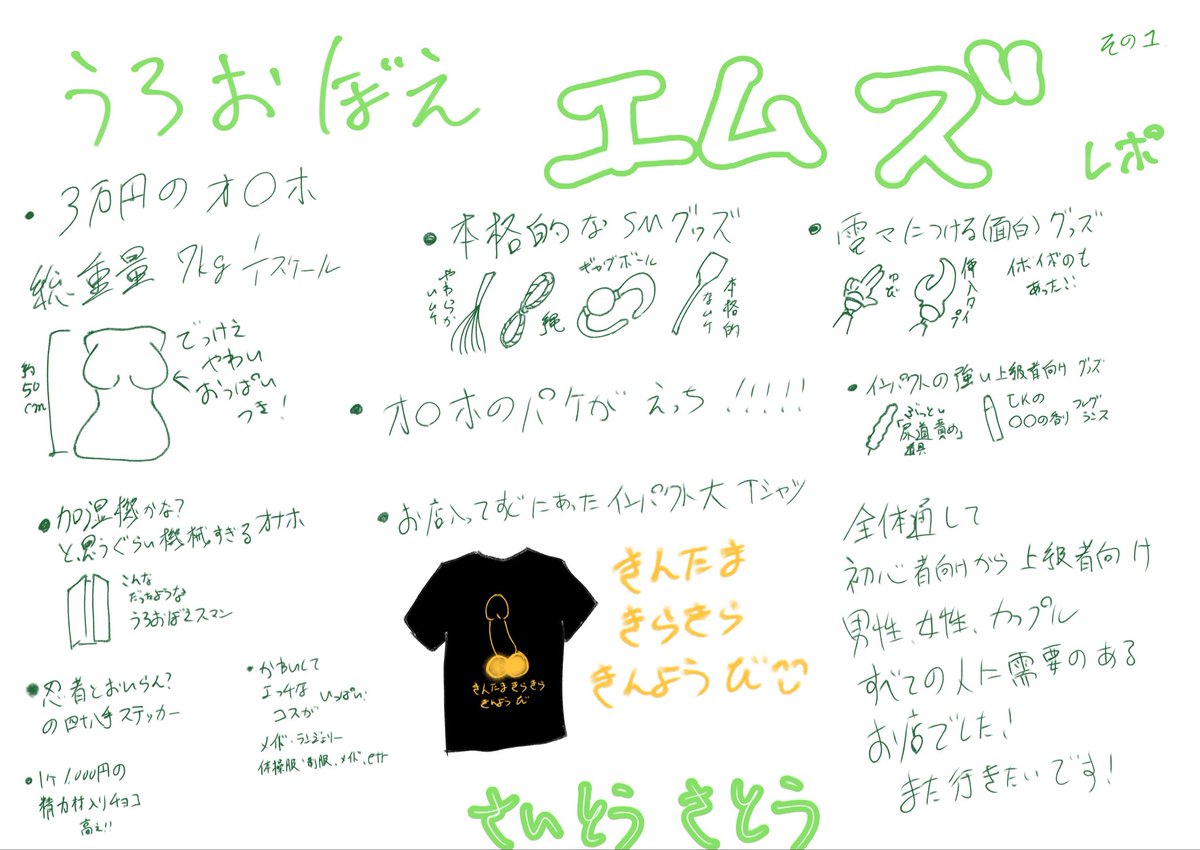 その1
うろおぼえ エムズ レポ
・3万円のオ〇ホ
総重量 7kg 1/1スケール
約50cm
でっけえ
やわい
おっぱい
つき!
・加湿機かな?
と、思うぐらい機械すぎるオナホ
こんな
だったような
うろおぼえスマン
・忍者とおいらん?
の四十八手ステッカー
・1ケ1,000円の
精力材入りチョコ
高え!!
・かわいして
エッチな
コスが いっぱい!
メイド・ランジェリー
体操服・制服、メイド、etc
・本格的なSMグッズ
やわらか
いムチ
縄
ギャグボール
本格的
なムチ
・オ〇ホのパケがえっち!!!!!
・お店入ってすぐにあったインパクト大 Tシャツ
きんたまきらきら
きんようび
きんたま
きらきら
きんようび
・電マにつける(面白)グッズ
ゆび
伸入タイプ
イボイボのも
あった!!
・インパクトの強い上級者向けグッズ
ぶっとい
「尿道責め」
道具
〇〇の香り フレグランス
全体通して
初心者向けから上級者向け
男性、女性、カップル
すべての人に需要のある
お店でした!
また行きたいです!
さいとう さとう